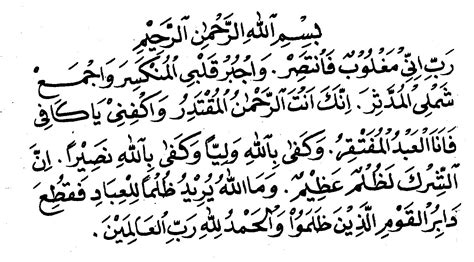 بِسْمِ اللهِ الرَّحْمٰنِ الرَّحِيْمِ
رَبِّ اِنِّىْ مَغْلُوْبٌ فَانْتَصِرْ. وَاجْبُرْ قَلْبِى الْمُنْكَسِرَ وَاجْمَعْ
شَمْلِى الْمُدَّثِرَ. اِنَّكَ اَنْتَ الرَّحْمٰنُ الْمُقْتَدِرُ وَاكْفِنِىْ يَاكَافِى
فَاَنَا الْعَبْدُ الْمُفْتَقِرُ. وَكَفٰى بِاللهِ وَلِيًّا وَكَفٰى بِاللهِ نَصِيْرًا. اِنَّ
الشِّرْكَ لَظُلْمٌ عَظِيْمٌ. وَمَا اللهُ يُرِيْدُ ظُلْمًا لِلْعِبَادِ فَقُطِعَ
دَابِرُ الْقَوْمِ الَّذِيْنَ ظَلَمُوْا وَالْحَمْدُ لِلّٰهِ رَبِّ الْعَالَمِيْنَ.